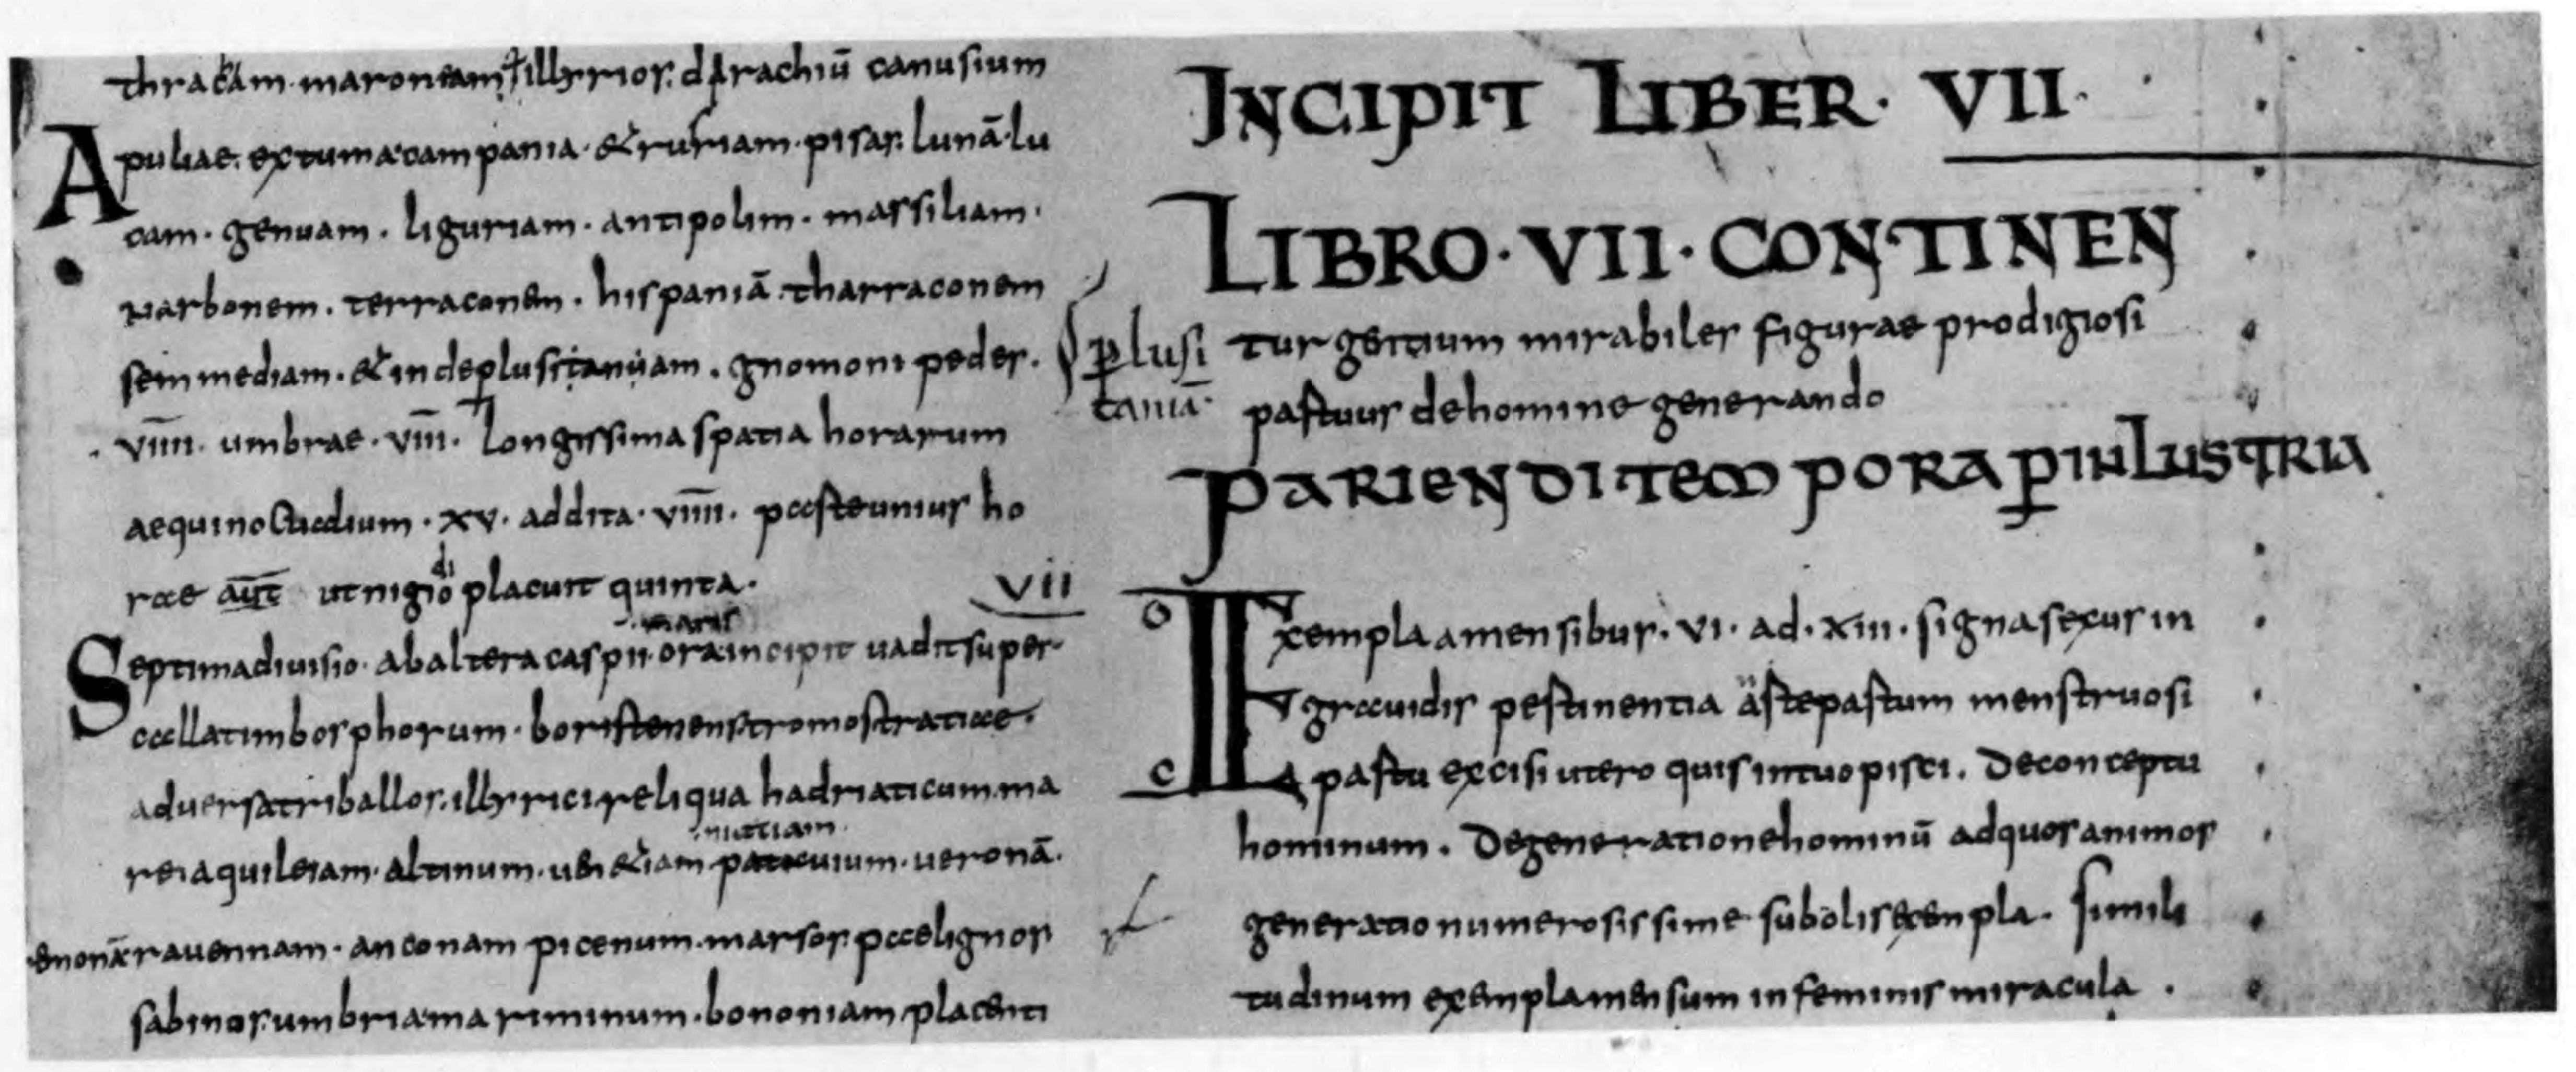 thraciam. maroneam. illyrios. dyrrachiū canusium
Apuliae. extuma campania. & rusiam. pisas. lunā. lu
cam. genuam. liguriam. antipolim. massiliam.
Narbonem. terraconem. hispaniā. tharraconem
sem mediam. & inde plusitanuam. gnomoni pedes.
VIIII. umbrae. VIII. Longissima spatia horarum
aequinoctiadium. XV. addita. VIIII. paste unius ho
rae aut ut nigidio placuit quinta.
VII
maris
Septima divisio. ab altera caspii. ora incipit uadit super
callatim bosphorum. boristenen stromostratiae.
adversa triballos. illyrici reliqua hadriaticum ma
nutiam
rei aquileiam. altinum. ubi &iam patauium. ueronā.
enonā rauennam. anconam picenum. marsos. paelignos
sabinos. umbriama riminum. bononiam placenti
INCIPIT LIBER. VII.
LIBRO. VII. CONTINEN
tur gentium mirabiles figurae prodigiosi
plusi
taniā
pastuus de homine generando
PARIENDI TEMPORA P INLUSTRIA
Exempla a mensibus. VI. ad. XIII. signa sexus in
grauidis pestinentia aste pastum menstruosi
pastu excisi utero quis int uopisci. De conceptu
hominum. De generatione hominū ad quos animos
generatio numerosissime subolis exempla. Simili
tudinum exempla mensum in feminis miracula.